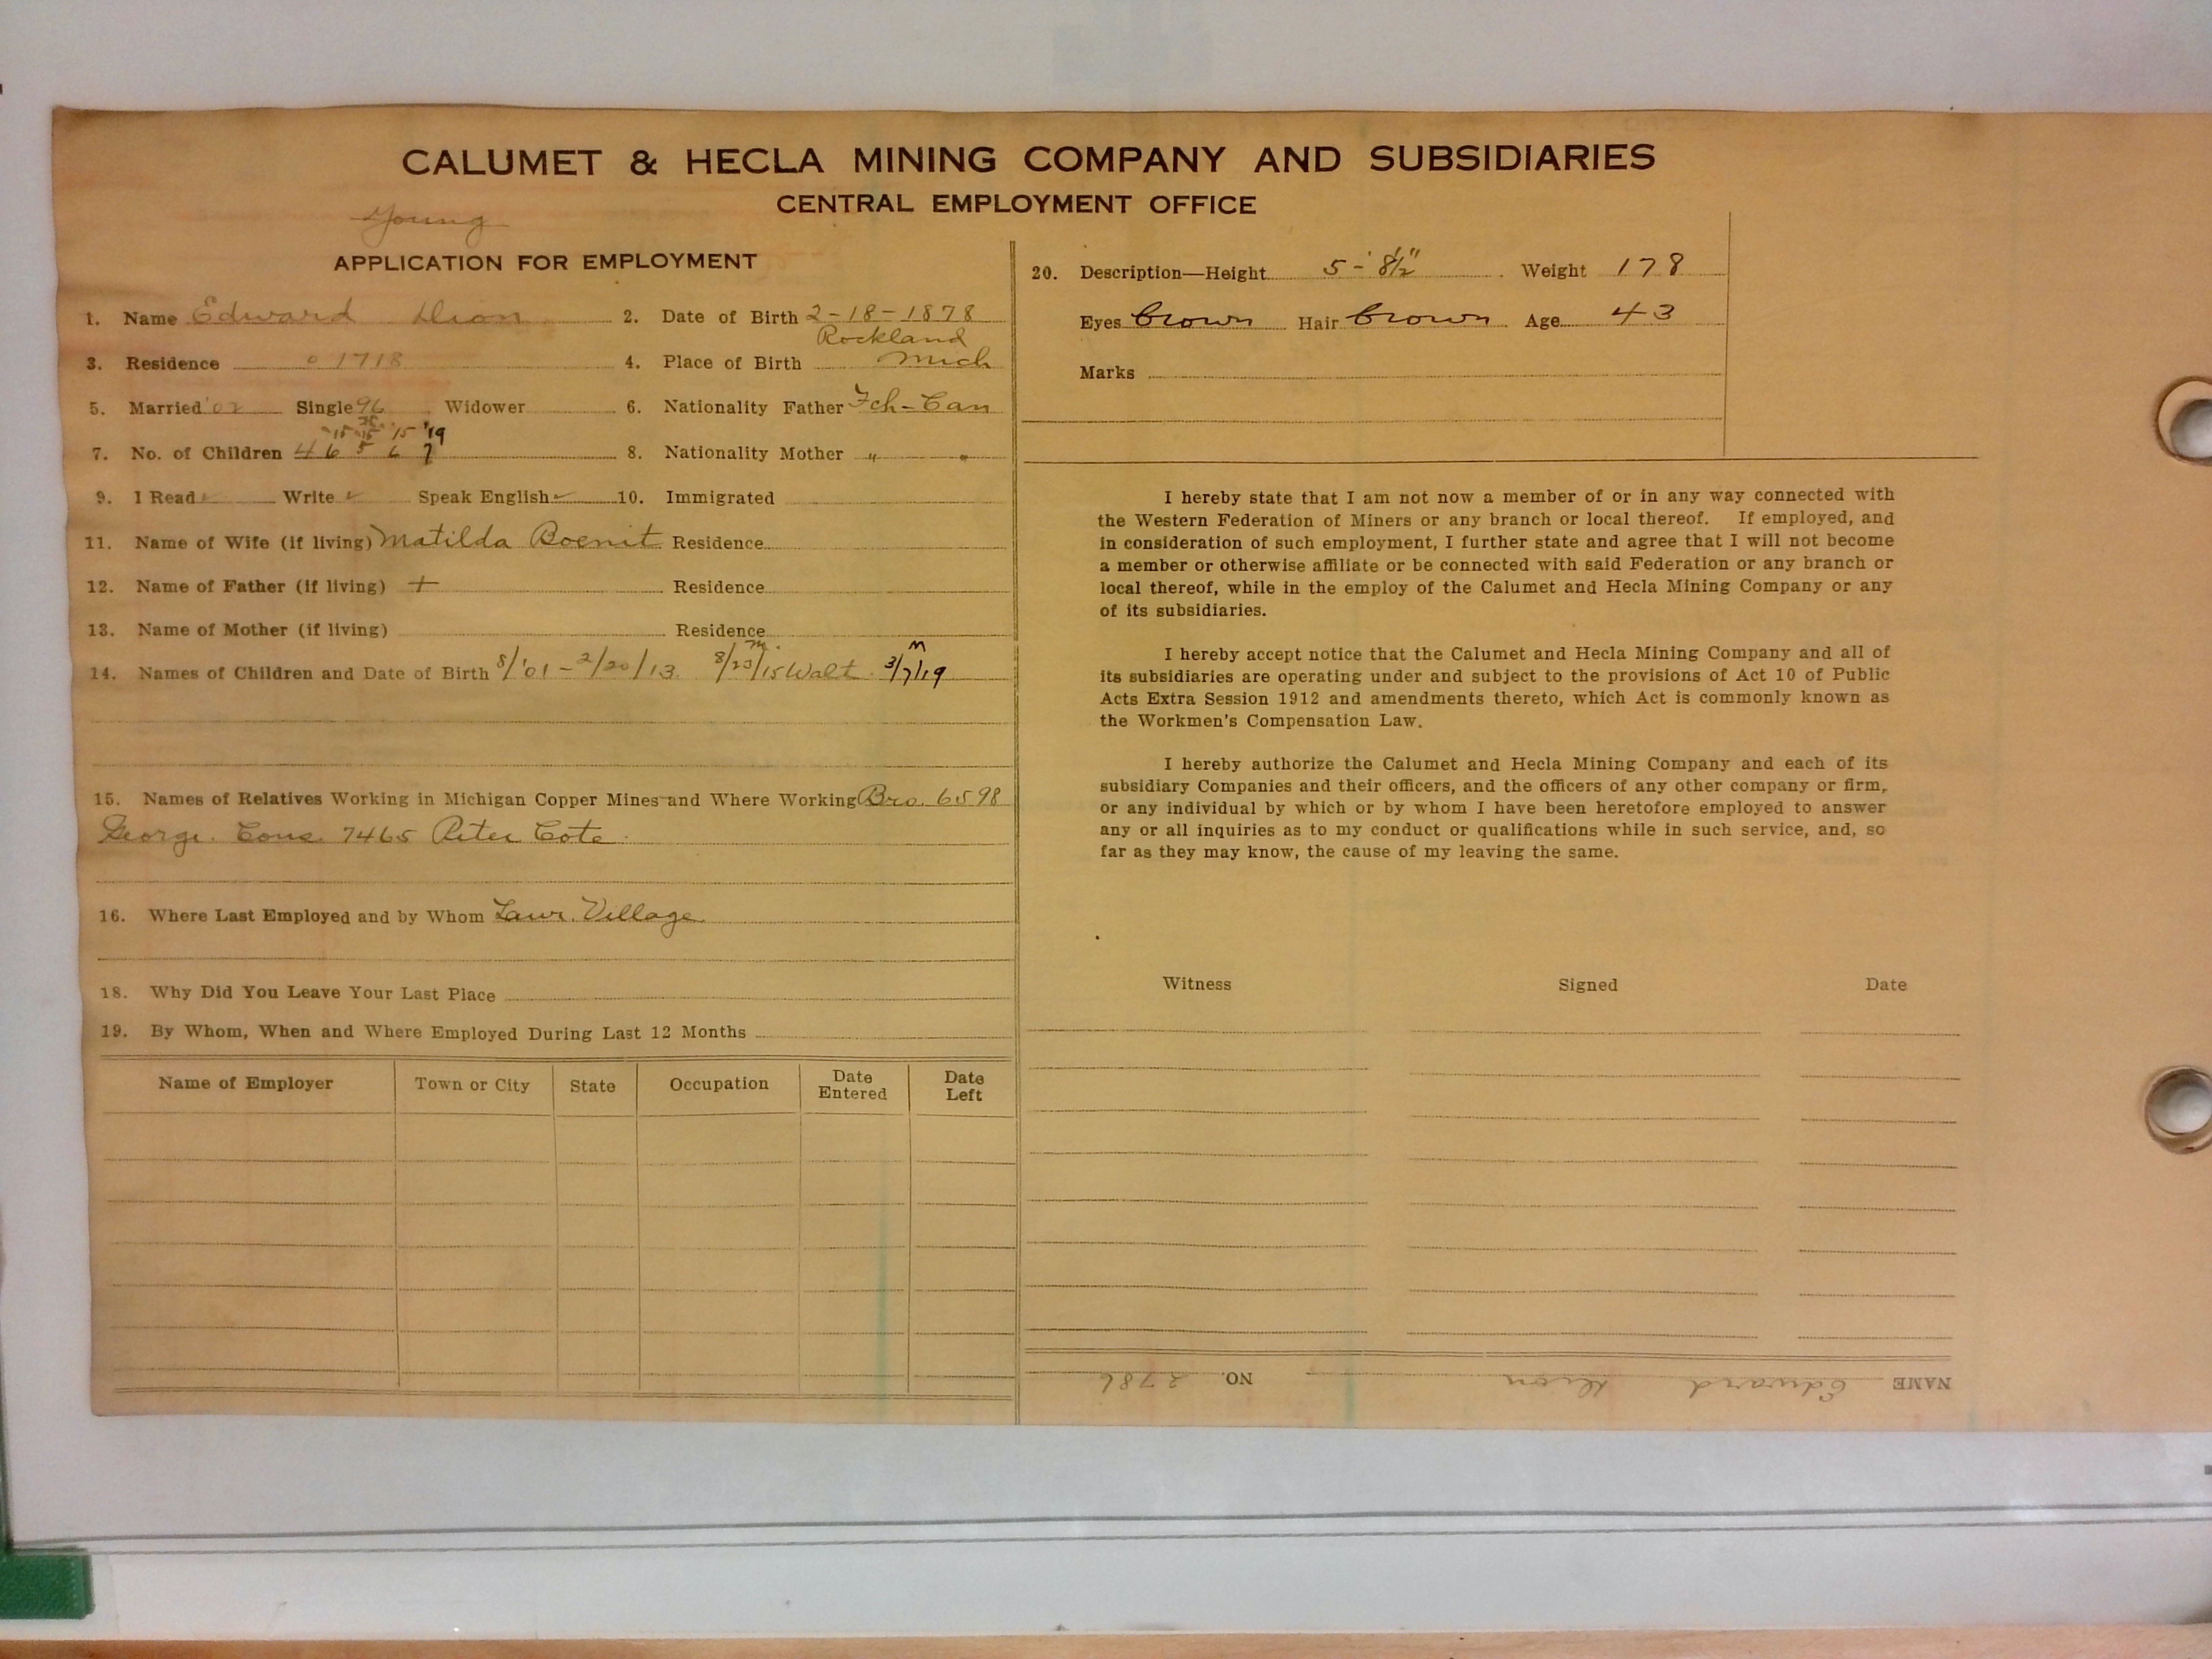 CALUMET & HECLA MINING COMPANY AND SUBSIDIARIES
CENTRAL EMPLOYMENT OFFICE
Young
APPLICATION FOR EMPLOYMENT
1. Name Edward Dion 2. Date of Birth 2-18-1878
Rockland
3. Residence 1718 4. Place of Birth Mich
5. Married '02 Single 96 Widower 6. Nationality Father Fch-Can
'15 '19
7. No. of Children 4 6 5 6 7 8. Nationality Mother " "
9. I Read ✓ Write ✓ Speak English ✓ 10. Immigrated
11. Name of Wife (if living) Matilda Residence
12. Name of Father (if living) + Residence
13. Name of Mother (if living) Residence
m. M
14. Names of Children and Date of Birth 8/'01 - 2/20/13 8/23/15 Walt. 3/7/19
15. Names of Relatives Working in Michigan Copper Mines and Where Working Bro. 6598
George. Cous. 7465 Peter Cote
16. Where Last Employed and by Whom Laur. Village
18. Why Did You Leave Your Last Place
19. By Whom, When and Where Employed During Last 12 Months
Name of Employer Town or City State Occupation Date Entered Date Left
20. Description—Height 5-8½" Weight 178
Eyes Brown Hair Brown Age 43
Marks
I hereby state that I am not now a member of or in any way connected with
the Western Federation of Miners or any branch or local thereof. If employed, and
in consideration of such employment, I further state and agree that I will not become
a member or otherwise affiliate or be connected with said Federation or any branch or
local thereof, while in the employ of the Calumet and Hecla Mining Company or any
of its subsidiaries.
I hereby accept notice that the Calumet and Hecla Mining Company and all of
its subsidiaries are operating under and subject to the provisions of Act 10 of Public
Acts Extra Session 1912 and amendments thereto, which Act is commonly known as
the Workmen's Compensation Law.
I hereby authorize the Calumet and Hecla Mining Company and each of its
subsidiary Companies and their officers, and the officers of any other company or firm,
or any individual by which or by whom I have been heretofore employed to answer
any or all inquiries as to my conduct or qualifications while in such service, and, so
far as they may know, the cause of my leaving the same.
Witness Signed Date
NAME Edward Dion NO. 2786